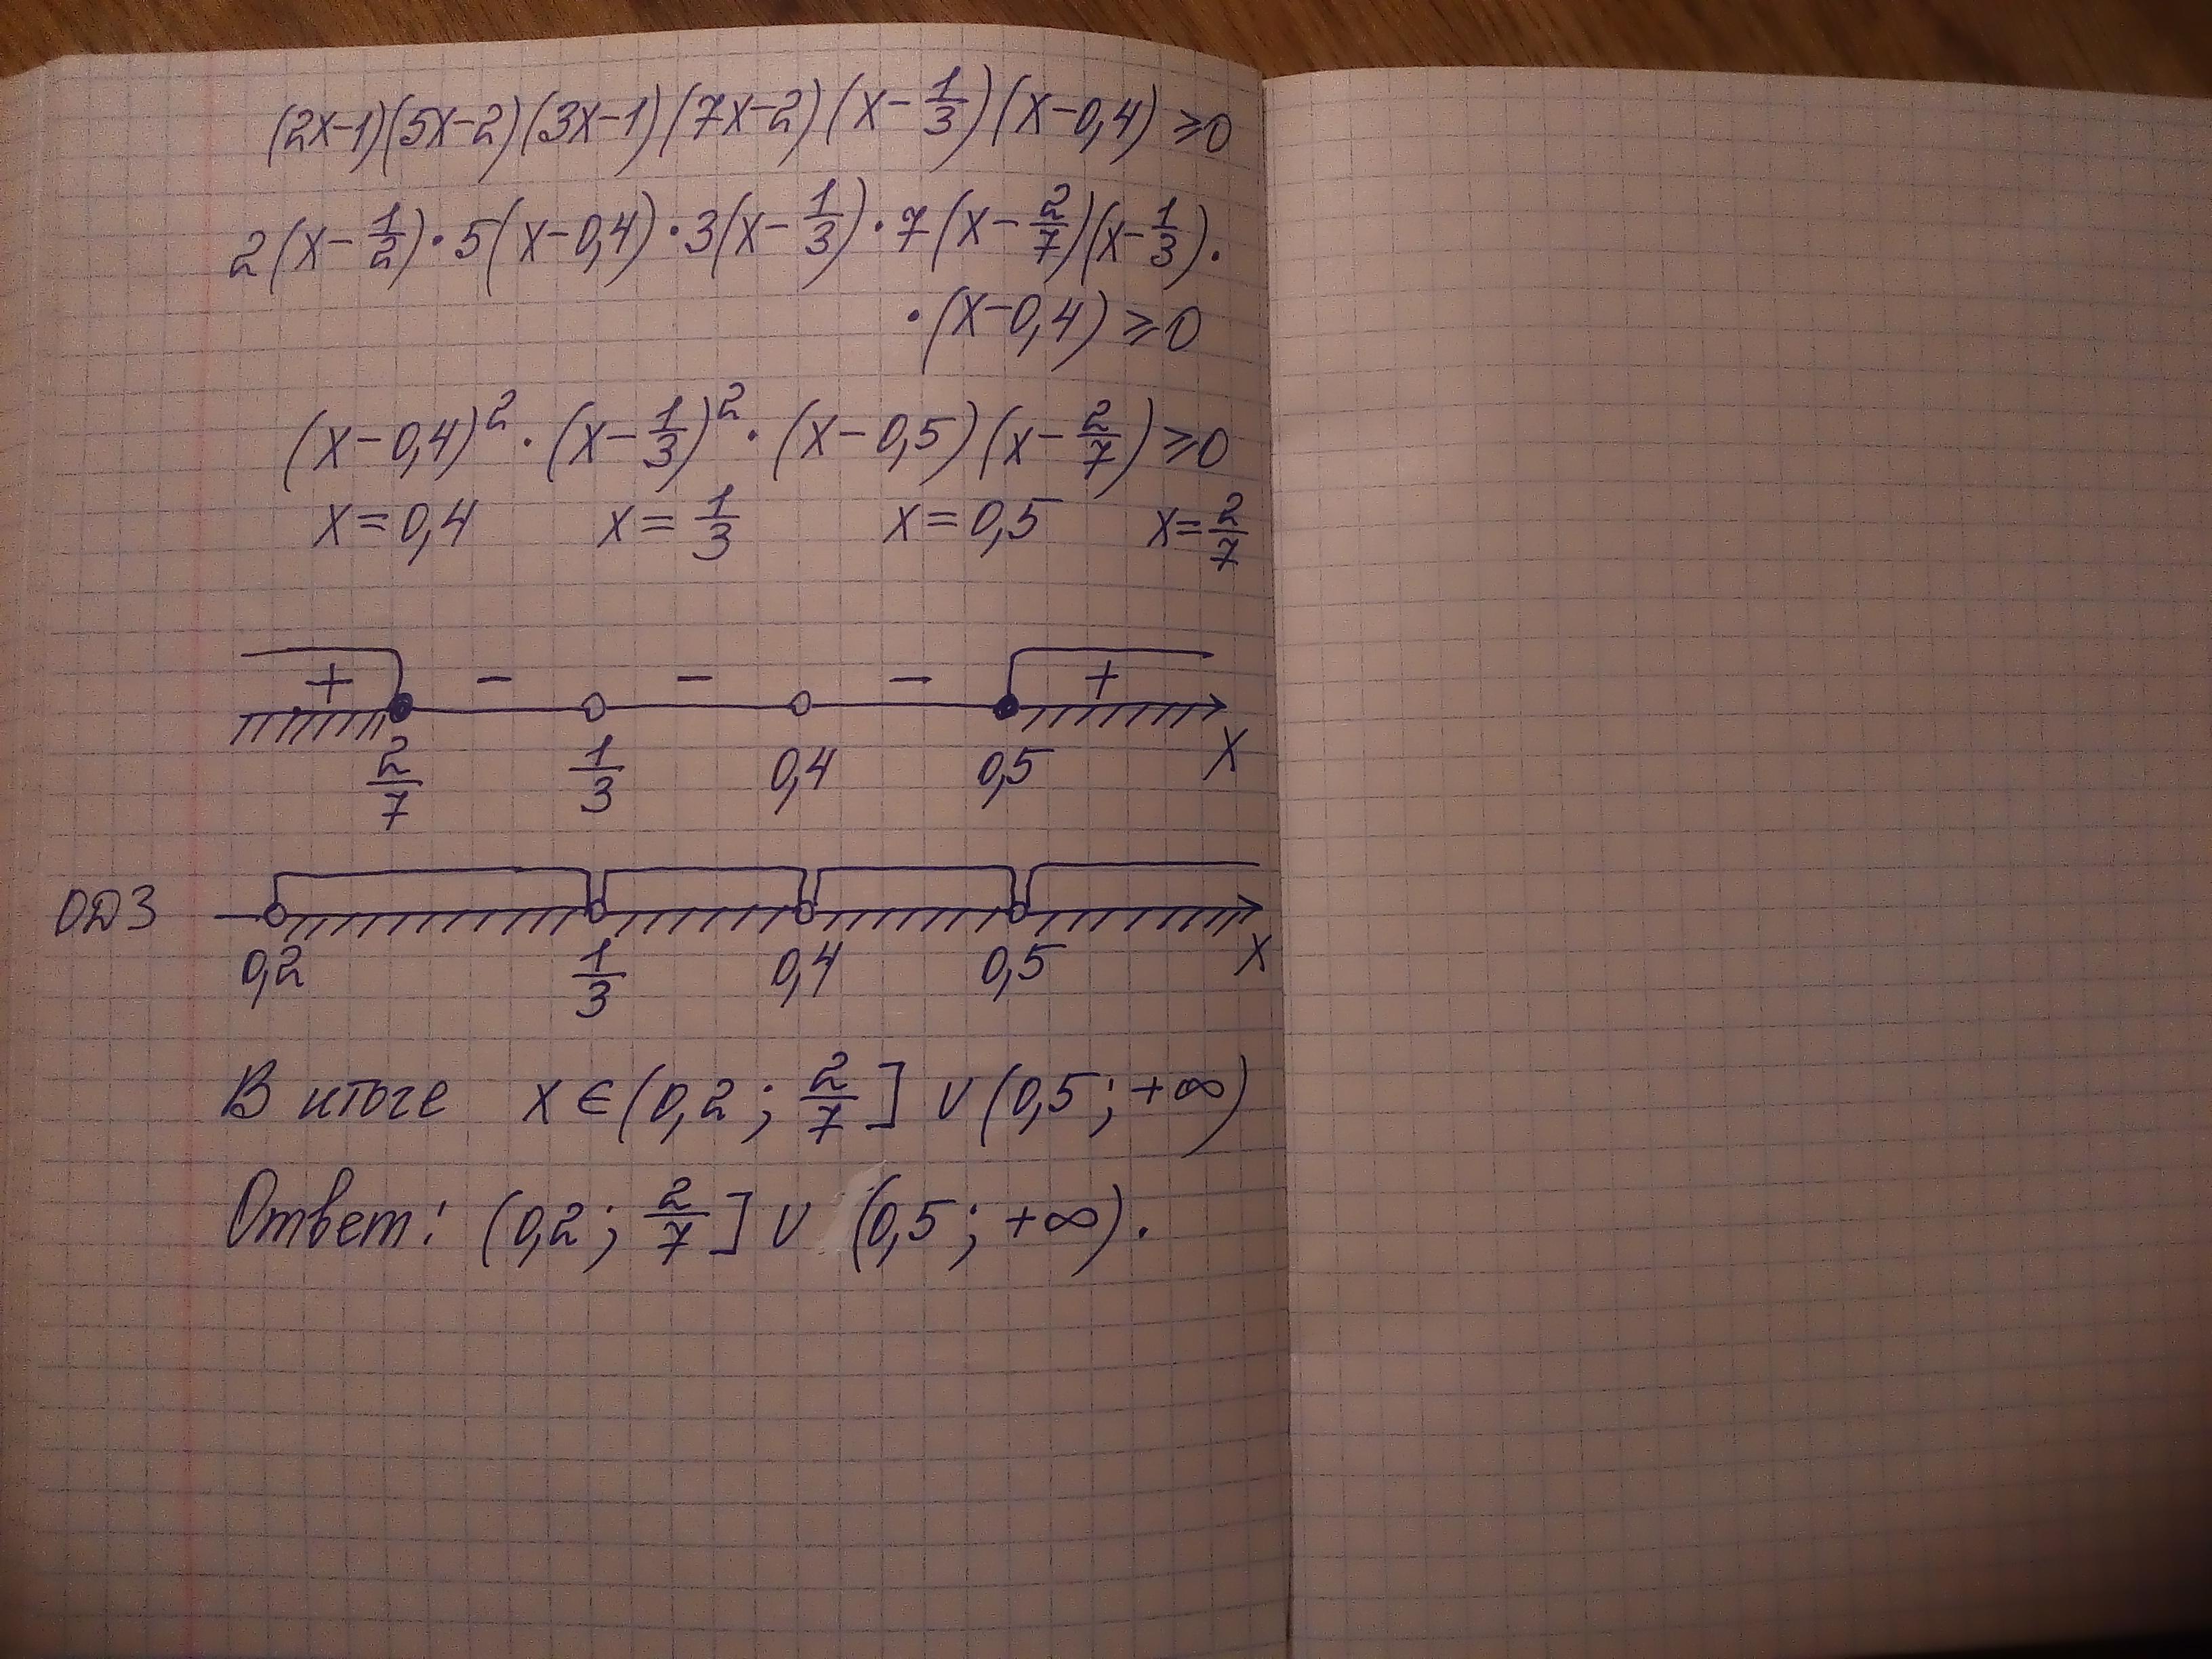 (2x-1)(5x-2)(3x-1)(7x-2)(x-1/3)(x-0,4)≥0
2(x-1/2)·5(x-0,4)·3(x-1/3)·7(x-2/7)(x-1/3)·
·(x-0,4)≥0
(x-0,4)²·(x-1/3)²·(x-0,5)(x-2/7)≥0
x=0,4 x=1/3 x=0,5 x=2/7
+ - - - +
2/7 1/3 0,4 0,5 x
ОДЗ
0,2 1/3 0,4 0,5 x
В итоге x∈(0,2; 2/7]∪(0,5; +∞)
Ответ: (0,2; 2/7]∪(0,5; +∞).